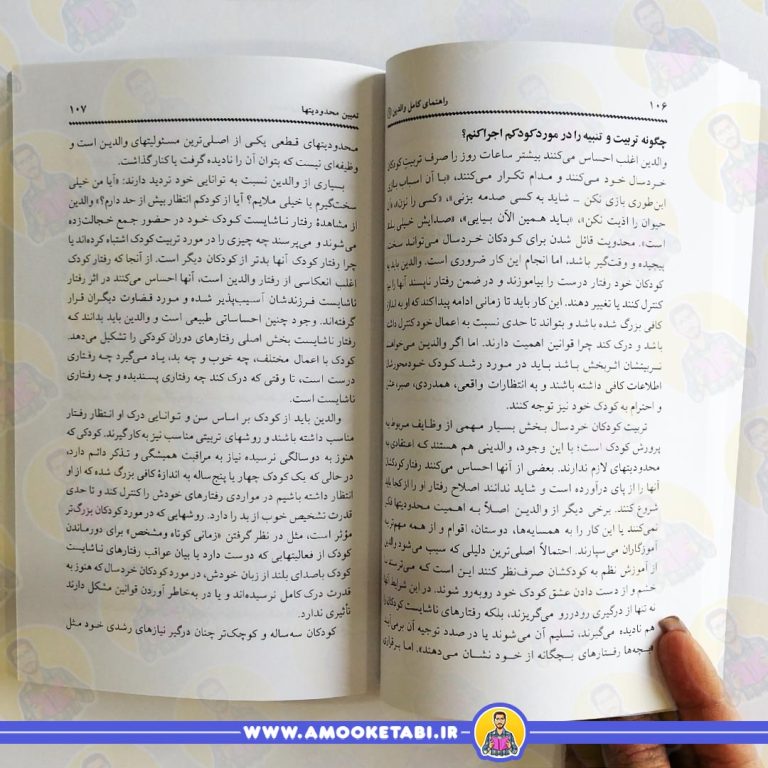 ۱۰۶
راهنمای کامل والدین
چگونه تربیت و تنبیه را در مورد کودکم اجرا کنم؟
والدین اغلب احساس می‌کنند بیشتر ساعات روز را صرف تربیت کودکان
خردسال خود می‌کنند و مدام تکرار می‌کنند، «با آن اسباب بازی
این‌طوری بازی نکن ــ شاید به کسی صدمه بزنی»، «کسی را نزن»، «آن
حیوان را اذیت نکن»، «باید همین الآن بیایی»، «صدایش خیلی بلند
است». محدویت قائل شدن برای کودکان خردسال می‌تواند سخت
پیچیده و وقت‌گیر باشد، اما انجام این کار ضروری است. والدین باید به
کودکان خود رفتار درست را بیاموزند و در ضمن رفتار ناپسند آنها را نیز
کنترل کنند یا تغییر دهند. این کار باید تا زمانی ادامه پیدا کند که او به اندازه
کافی بزرگ شده باشد و بتواند تا حدی نسبت به اعمال خود کنترل داشته
باشد و درک کند چرا قوانین اهمیت دارند. اما اگر والدین می‌خواهند
تربیتشان اثربخش باشد باید در مورد رشد کودک خودمحورشان
اطلاعات کافی داشته باشند و به انتظارات واقعی، همدردی، صبر، عشق
و احترام به کودک خود نیز توجه کنند.
تربیت کودکان خردسال بخش بسیار مهمی از وظایف مربوط به
پرورش کودک است؛ با این وجود، والدینی هم هستند که اعتقادی به
محدودیتهای لازم ندارند. بعضی از آنها احساس می‌کنند رفتار کودکشان
آنها را از پای درآورده است و شاید ندانند اصلاح رفتار او را از کجا باید
شروع کنند. برخی دیگر از والدین اصلاً به اهمیت محدودیتها فکر
نمی‌کنند یا این کار را به همسایه‌ها، دوستان، اقوام و از همه مهم‌تر به
آموزگاران می‌سپارند. احتمالاً اصلی‌ترین دلیلی که سبب می‌شود والدین
از آموزش نظم به کودکشان صرف‌نظر کنند این است که می‌ترسند با
خشم و از دست دادن عشق کودک خود روبه‌رو شوند. در این شرایط آنها
نه تنها از درگیری رودررو می‌گریزند، بلکه رفتارهای ناشایست کودکان را
هم نادیده می‌گیرند، تسلیم آن می‌شوند یا در صدد توجیه آن برمی‌آیند
«بچه‌ها رفتارهای بچگانه از خود نشان می‌دهند». اما برقراری
تعیین محدودیتها
۱۰۷
محدودیتهای قطعی یکی از اصلی‌ترین مسئولیتهای والدین است و
وظیفه‌ای نیست که بتوان آن را نادیده گرفت یا کنار گذاشت.
بسیاری از والدین نسبت به توانایی خود تردید دارند: «آیا من خیلی
سخت‌گیرم یا خیلی ملایم؟ آیا از کودکم انتظار بیش از حد دارم؟» والدین
از مشاهدهٔ رفتار ناشایست کودک خود در حضور جمع خجالت‌زده
می‌شوند و می‌پرسند چه چیزی را در مورد تربیت کودک اشتباه کرده‌اند یا
چرا رفتار کودک آنها بدتر از کودکان دیگر است. از آنجا که رفتار کودک
اغلب انعکاسی از رفتار والدین است، آنها احساس می‌کنند در اثر رفتار
ناشایست فرزندشان آسیب‌پذیر شده و مورد قضاوت دیگران قرار
گرفته‌اند. وجود چنین احساساتی طبیعی است و والدین باید بدانند که
رفتار ناشایست بخش اصلی رفتارهای دوران کودکی را تشکیل می‌دهد.
کودک با اعمال مختلف، چه خوب و چه بد، یاد می‌گیرد چه رفتاری
درست است، تا وقتی که درک کند چه رفتاری پسندیده و چه رفتاری
ناشایست است.
والدین باید از کودک بر اساس سن و توانایی درک او انتظار رفتار
مناسب داشته باشند و روشهای تربیتی مناسب نیز به کار گیرند. کودکی که
هنوز به دوسالگی نرسیده نیاز به مراقبت همیشگی و تذکر دائم دارد،
در حالی که یک کودک چهار یا پنج‌ساله به اندازهٔ کافی بزرگ شده که از او
انتظار داشته باشیم در مواردی رفتارهای خودش را کنترل کند و تا حدی
قدرت تشخیص خوب از بد را دارد. روشهایی که در مورد کودکان بزرگ‌تر
مؤثر است، مثل در نظر گرفتن «زمانی کوتاه و مشخص» برای دورماندن
کودک از فعالیتهایی که دوست دارد یا بیان عواقب رفتارهای ناشایست
کودک با صدای بلند از زبان خودش، در مورد کودکان خردسال که هنوز به
قدرت درک کامل نرسیده‌اند و یا در به‌خاطر آوردن قوانین مشکل دارند
تأثیری ندارد.
کودکان سه‌ساله و کوچک‌تر چنان درگیر نیازهای رشدی خود مثل
WWW.AMOOKETABI.IR